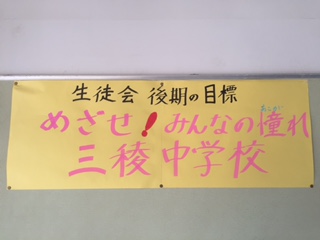 生徒会 後期の目標
めざせ！みんなの憧れ
三稜中学校